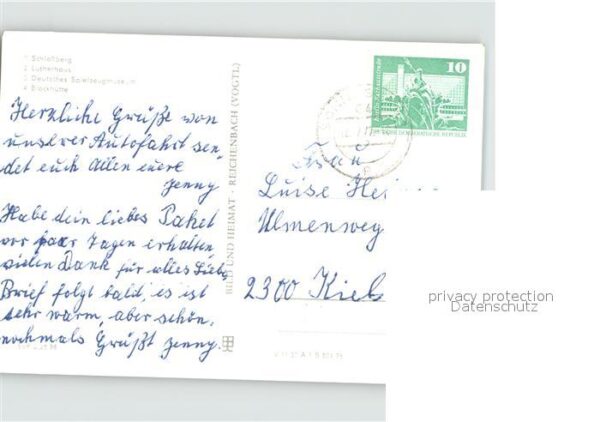 1 Schloßberg
2 Lutherhaus
3 Deutsches Spielzeugmuseum
4 Blockhütte
Herzliche Grüße von
unserer Autofahrt sen-
det euch allen eure
Jenny
Habe dein liebes Paket
vor paar Tagen erhalten
vielen Dank für alles Liebe
Brief folgt bald, es ist
sehr warm, aber schön,
nochmals Grüßt Jenny.
BILD UND HEIMAT · REICHENBACH (VOGTL)
10
DEUTSCHE DEMOKRATISCHE REPUBLIK
Frau
Luise
Ulmenweg
2300 Kiel
privacy protection
Datenschutz